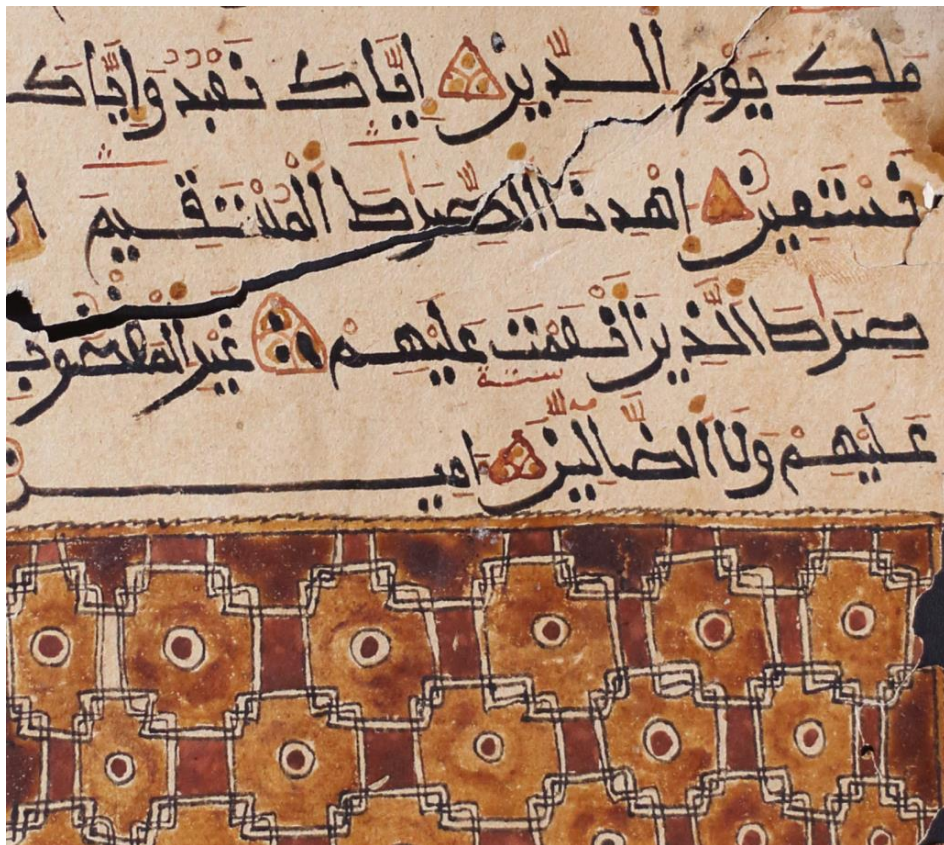 مَلِكِ يَوْمِ الدِّينِ إِيَّاكَ نَعْبُدُ وَإِيَّاكَ
نَسْتَعِينُ اهْدِنَا الصِّرَاطَ الْمُسْتَقِيمَ
صِرَاطَ الَّذِينَ أَنْعَمْتَ عَلَيْهِمْ غَيْرِ الْمَغْضُوبِ
ستة
عَلَيْهِمْ وَلَا الضَّالِّينَ امين